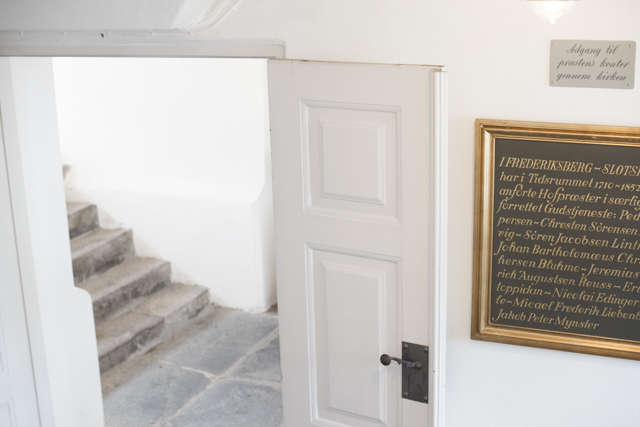 Adgang til
præstens kontor
gennem kirken
I FREDERIKSBERG - SLOTSK
har i Tidsrummet 1710-1852
anförte Hofpræster i særlig
forrettet Gudstjeneste: Ped
persen - Chresten Sörensen
vig - Sören Jacobsen Lint
Johan Bartholomæus Chr
hersen Bluhme - Jeremia
rich Augustsen Reuss - Er
toppidan - Nicolai Edinge
te - Micael Frederik Liebenb
Jakob Peter Mynster